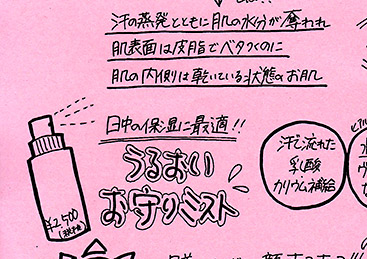 汗の蒸発とともに肌の水分が奪われ
肌表面は皮脂でベタつくのに
肌の内側は乾いている状態のお肌
日中の保湿に最適!!
うるおい
お守りミスト
¥2,500
(税抜)
汗で流れた
乳酸
カリウム補給